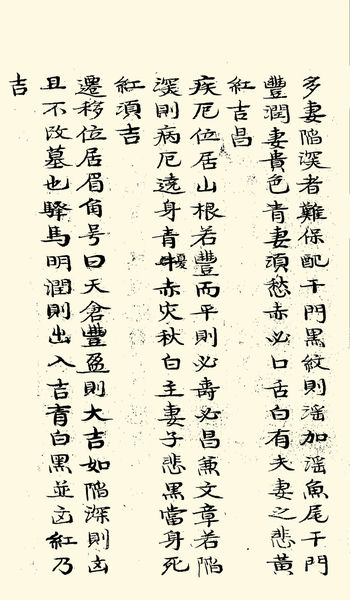 多妻陷深者難保配干門黒紋則滛加滛魚尾干門
豐潤妻貴色青妻湏愁赤必口舌白有夫妻之悲黃
紅吉昌
疾厄位居山根若豐而平則必壽必昌兼文章若陷
深則病厄遶身青憂赤灾秋白主妻子悲黒當身死
紅湏吉
遷移位居眉角号曰天倉豐盈則大吉如陷深則凶
且不改墓也驛馬明潤則出入吉青白黒並凶紅乃
吉